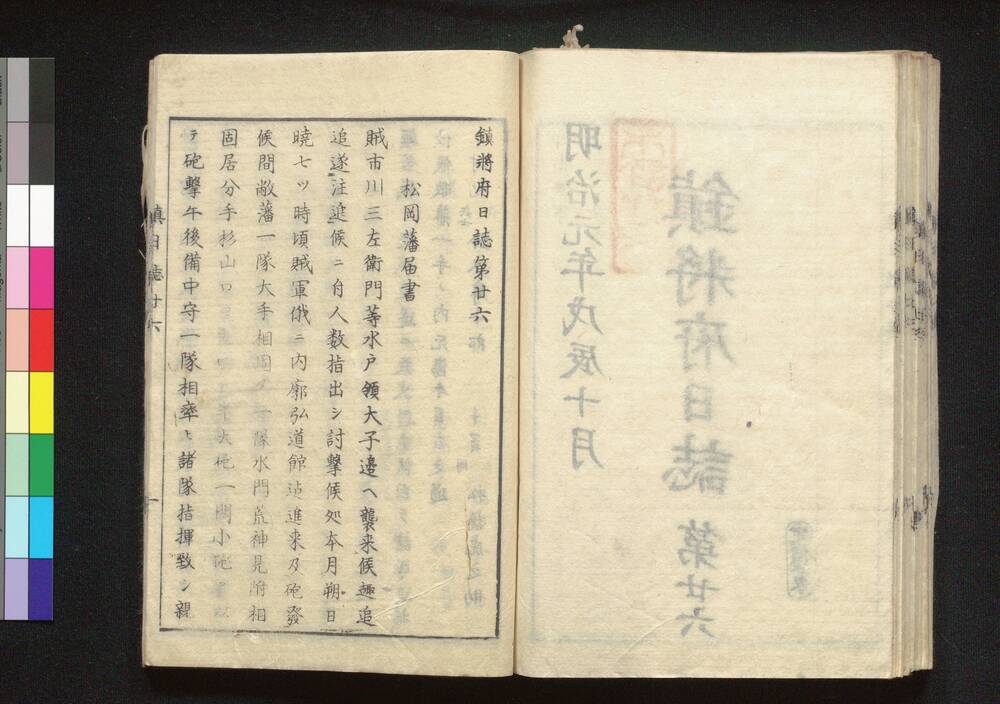 明治元年戊辰十月
鎮將府日誌 第廿六
鎮將府日誌第廿六
松岡藩届書
賊市川三左衛門等水戸領大子邉ヘ襲来候趣追
追遂注進候ニ付人数指出シ討撃候処本月朔日
暁七ツ時頃賊軍俄ニ内廓弘道館迠進来及砲發
候間敝藩一隊大手相固メ一隊水門荒神見附相
固居分手杉山口
大砲一門小砲
テ砲撃午後備中守一隊相率ヒ諸隊指揮致シ親
鎮日誌廿六
一